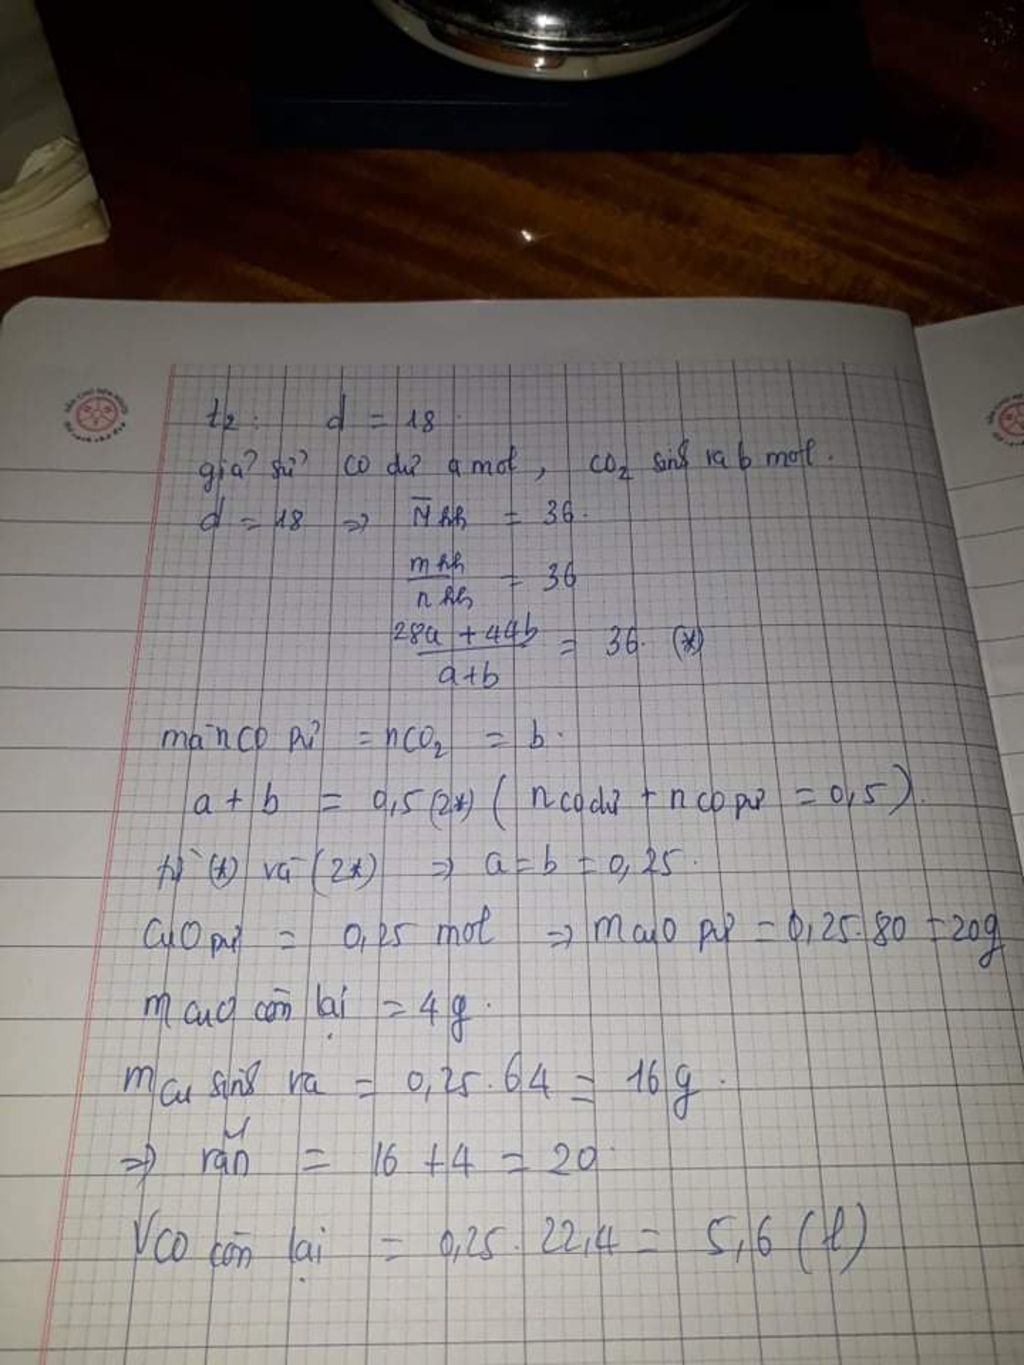 t2: d = 18.
giả sử CO dư a mol, CO2 sinh ra b mol.
d = 18 => M̄hh = 36.
mhh
/ nhh = 36
28a + 44b
/ a+b = 36. (*)
mà nCO pứ = nCO2 = b.
a + b = 0,5 (2*) ( nCO dư + nCO pứ = 0,5 ).
từ (*) và (2*) => a = b = 0,25.
CuO pứ = 0,25 mol => mCuO pứ = 0,25.80 = 20g
mCuO còn lại = 4g.
mCu sinh ra = 0,25.64 = 16g.
=> rắn = 16 + 4 = 20.
VCO còn lại = 0,25.22,4 = 5,6 (l)